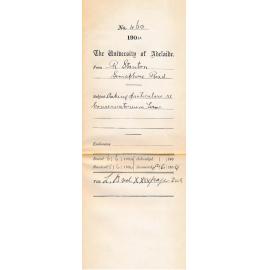 No. 460
1904
The University of Adelaide.
From R Stanton
Semaphore Road
Subject Asking particulars re
Conservatorium Exam
Enclosures
Dated 5/6/1904 Acknowledged / /190
Received 6/6/1904 Answered /6/1904
Vide L. Book XXX page